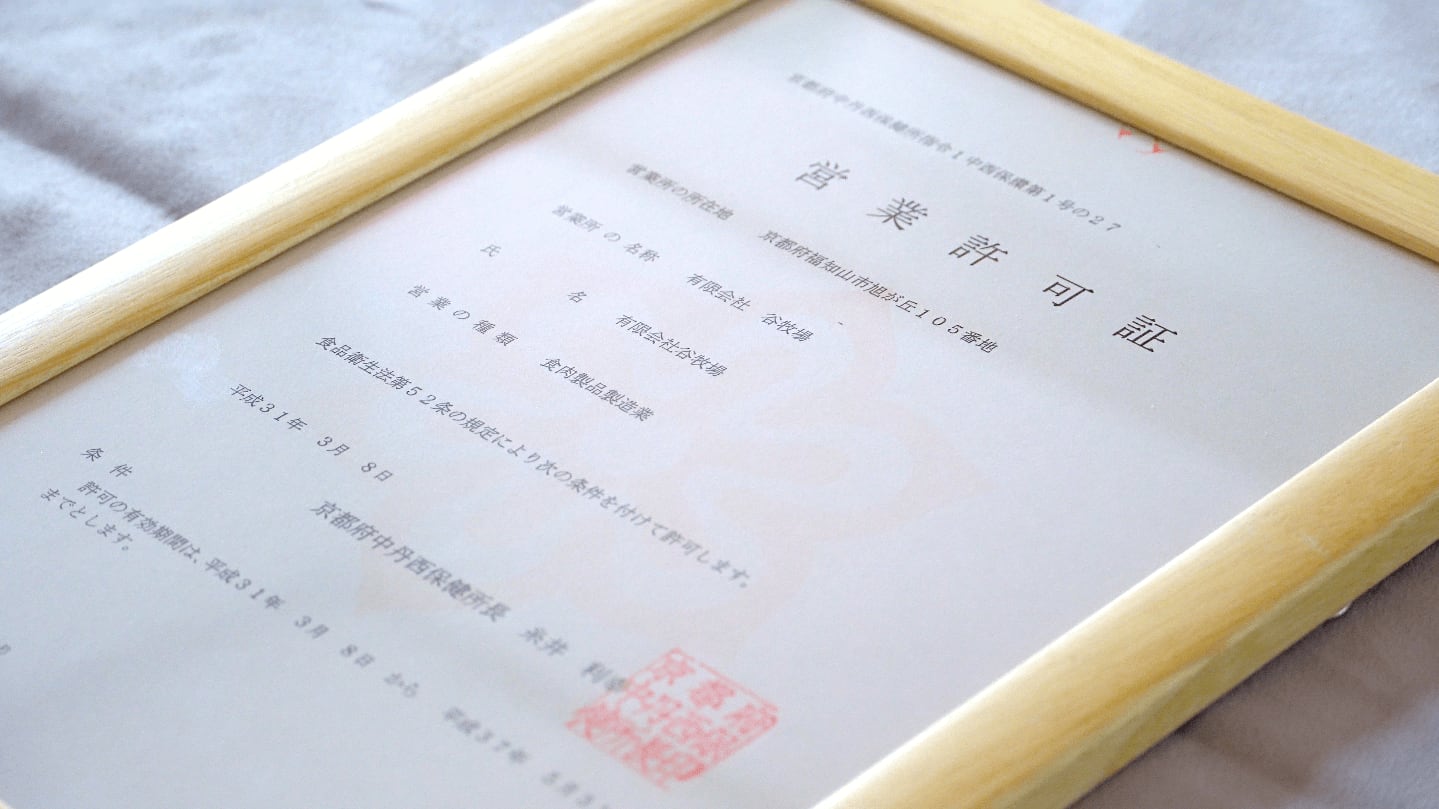 京都府中丹西保健所指令1中西保環第1号の27
営業許可証
営業所の所在地 京都府福知山市旭が丘105番地
営業所の名称 有限会社 谷牧場
氏名 有限会社谷牧場
営業の種類 食肉製品製造業
食品衛生法第52条の規定により次の条件を付けて許可します。
平成31年 3月 8日
京都府中丹西保健所長 糸井 利幸
条件
許可の有効期間は、平成31年 3月 8日 から 平成37年 5月31
までとします。